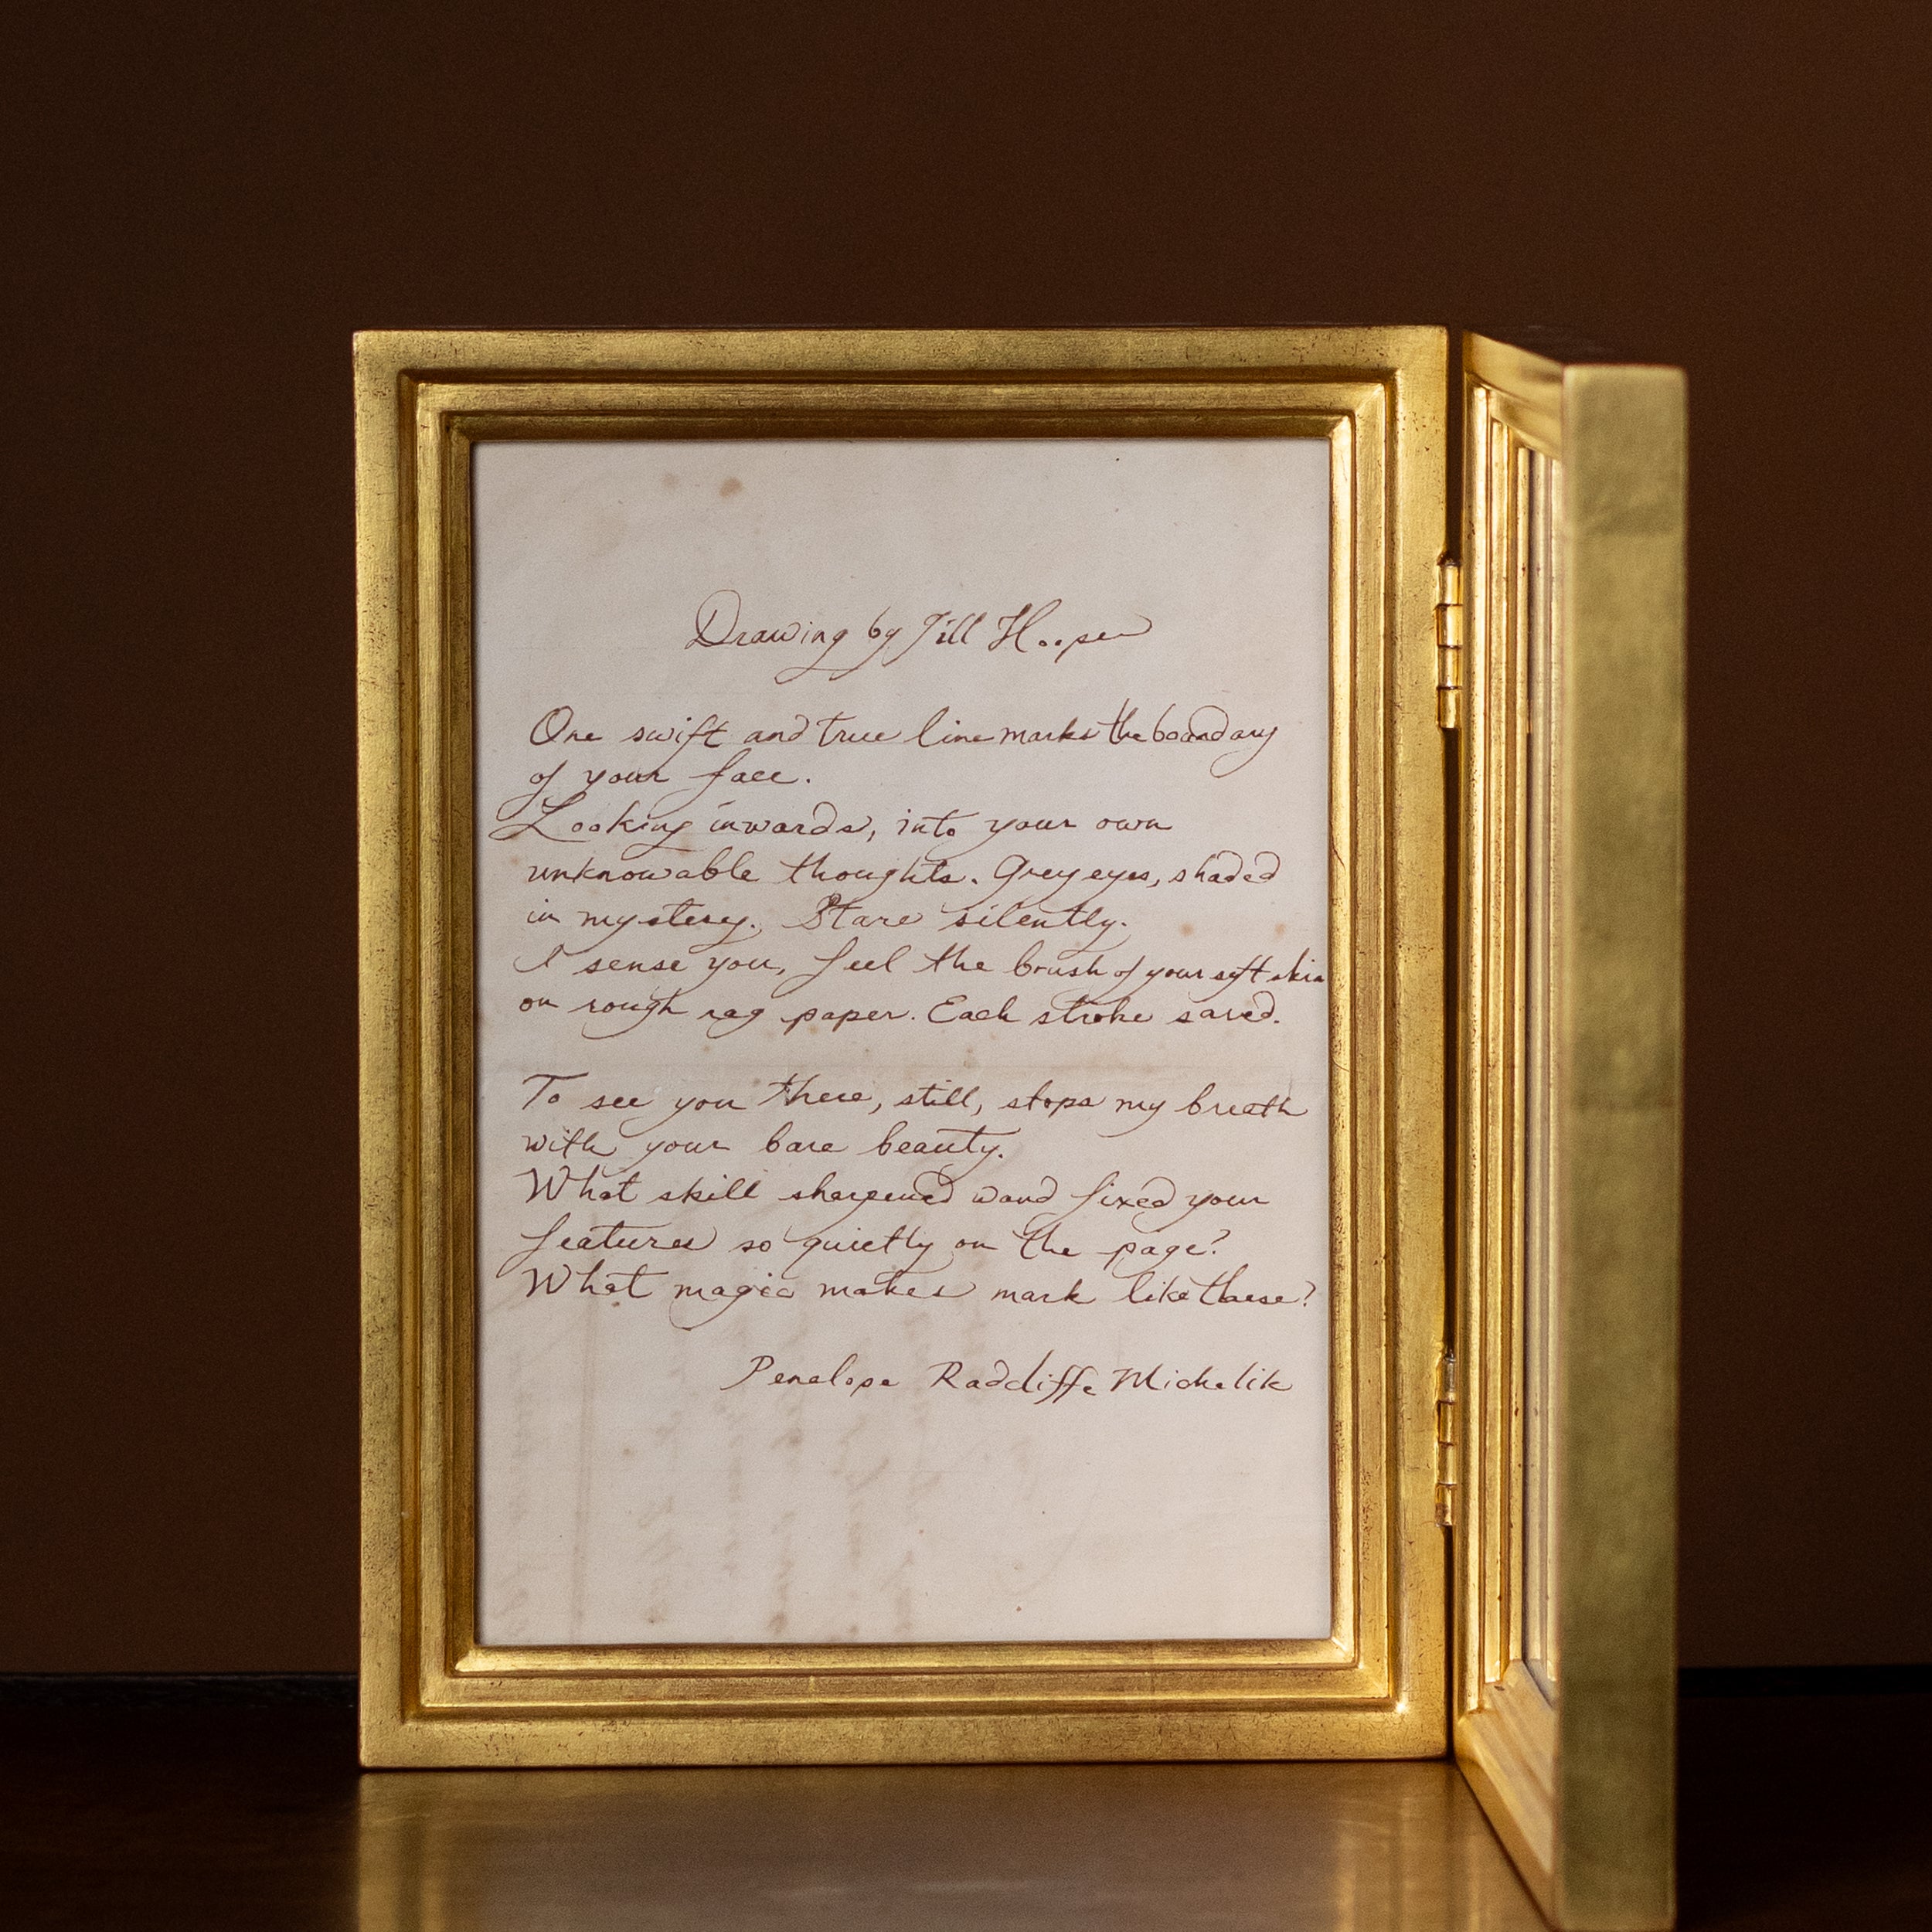 Drawing by Jill Hooper
One swift and true line marks the boundary
of your face.
Looking inwards, into your own
unknowable thoughts. Grey eyes, shaded
in mystery. Stare silently.
I sense you, feel the brush of your soft skin
on rough rag paper. Each stroke saved.
To see you there, still, stops my breath
with your bare beauty.
What skill sharpened wand fixed your
features so quietly on the page?
What magic makes mark like these?
Penelope Radcliffe Michelik